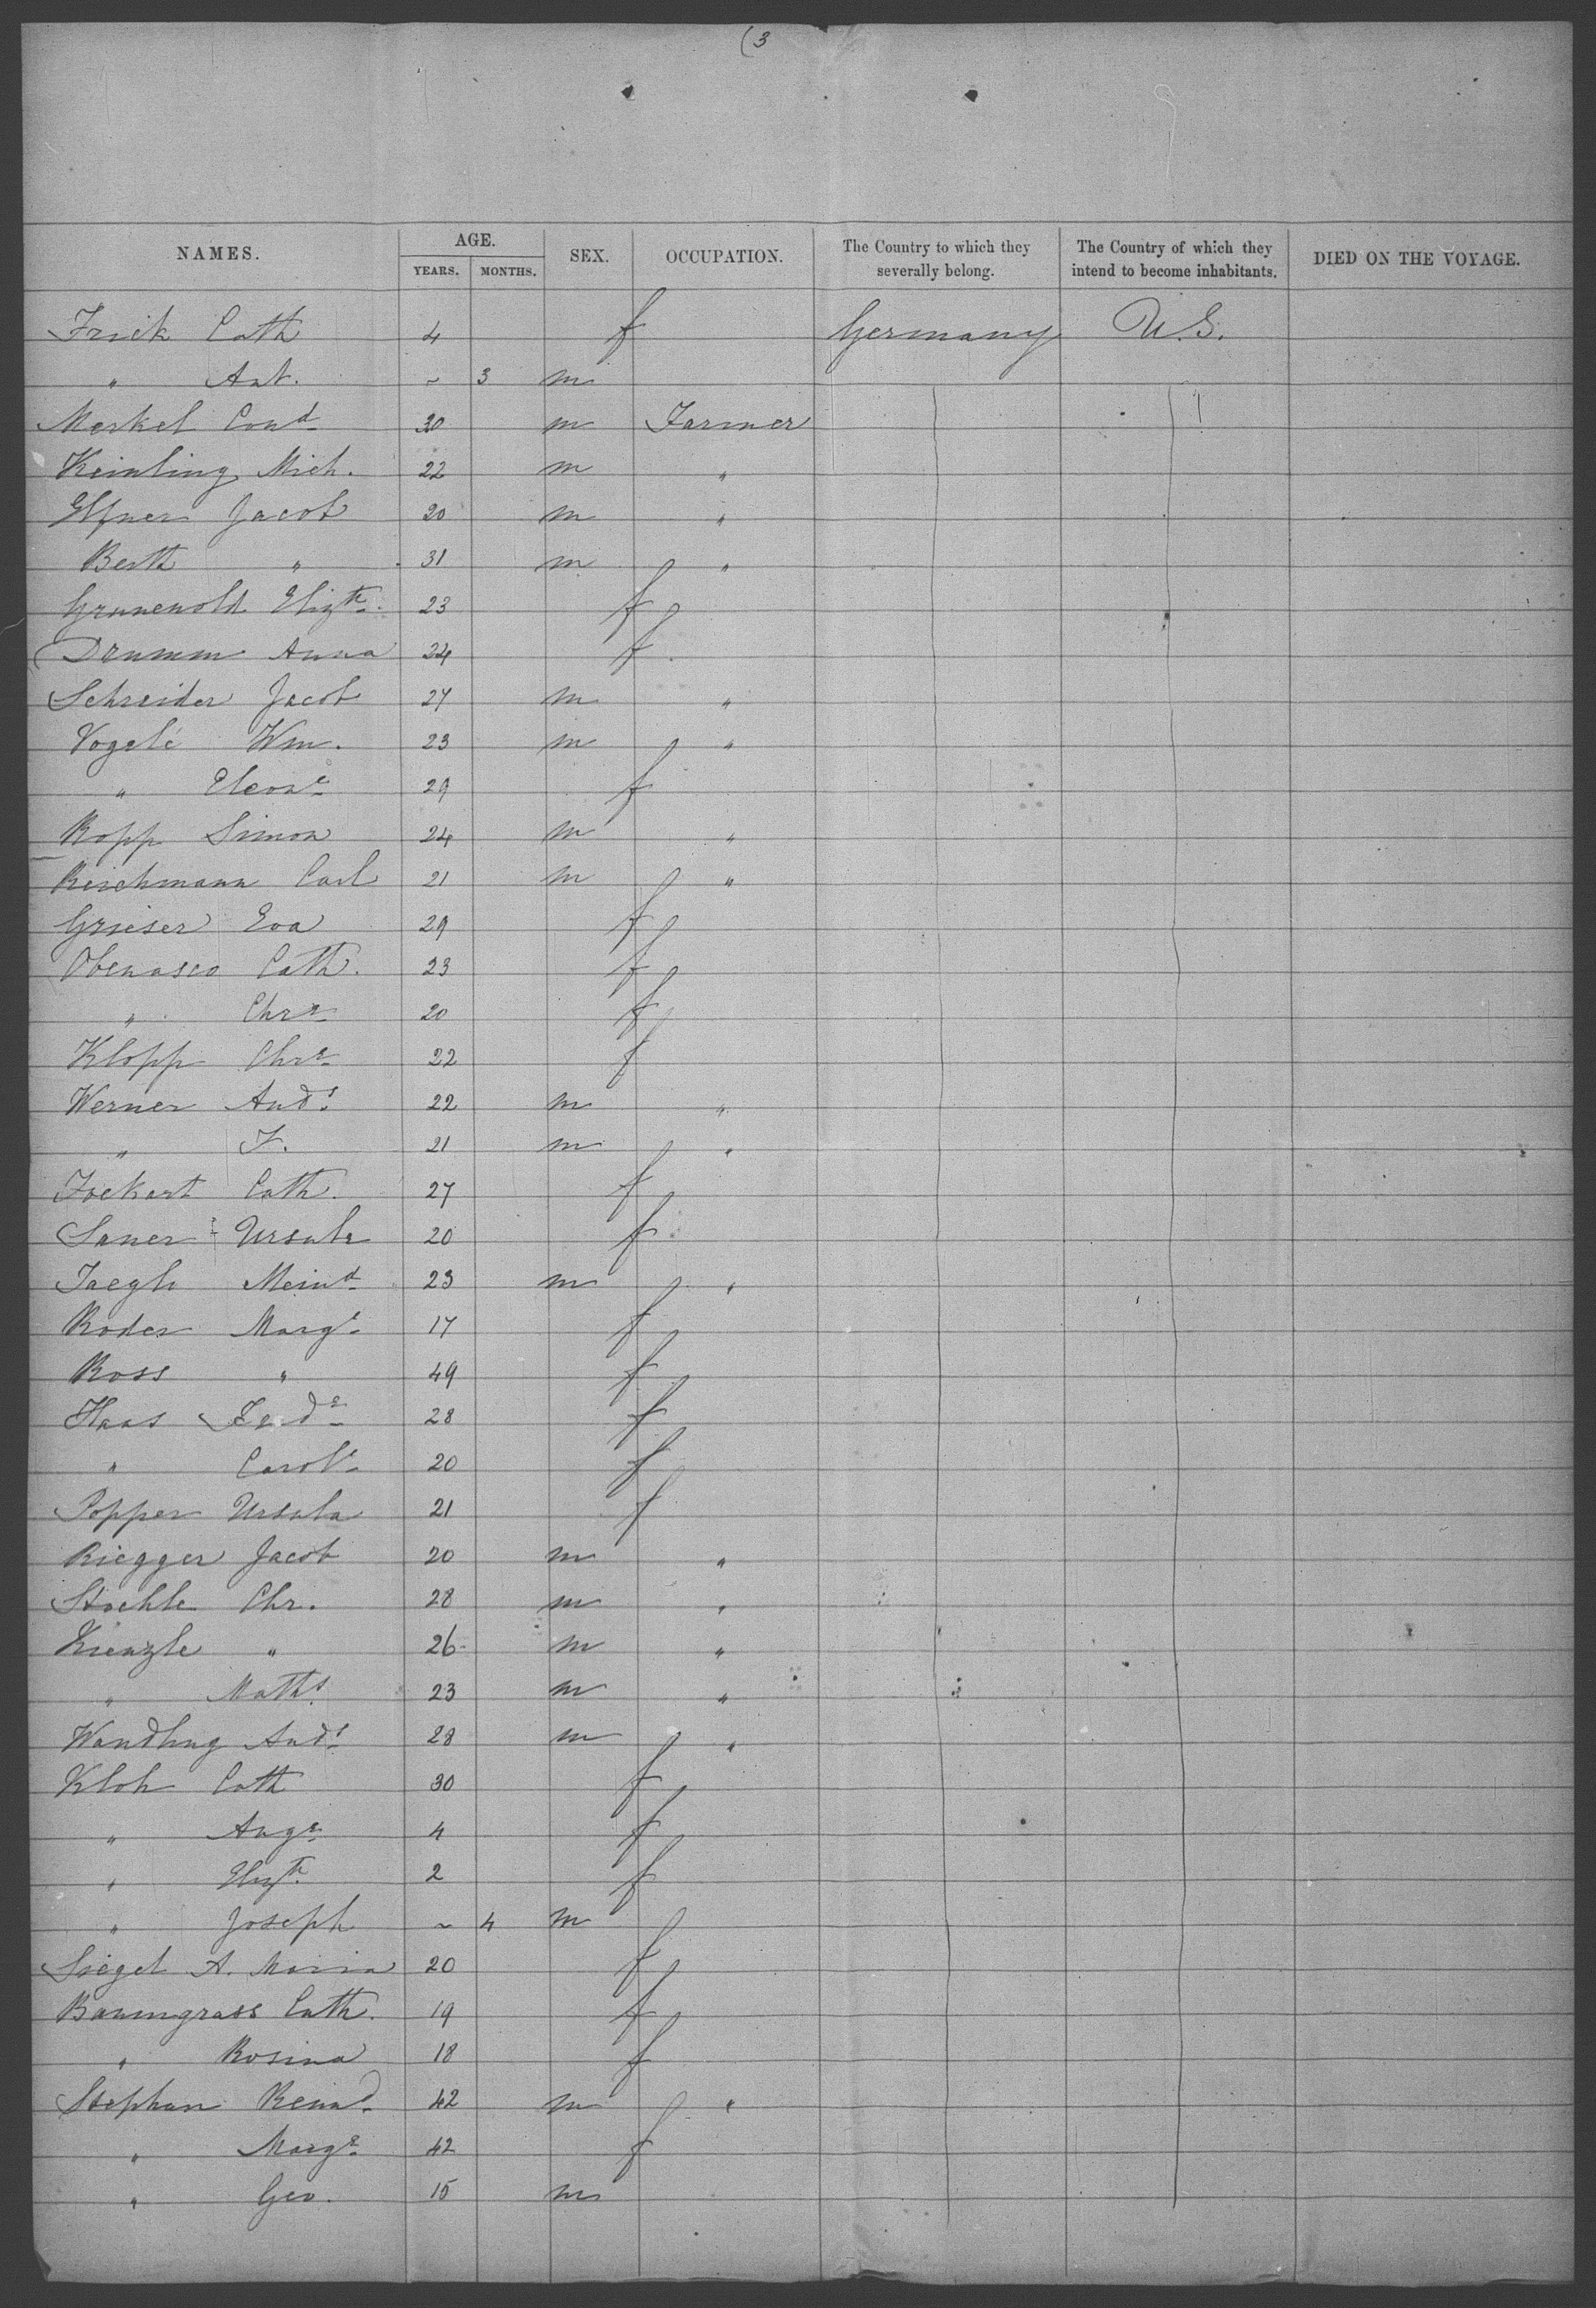 (3
NAMES. AGE. YEARS. MONTHS. SEX. OCCUPATION. The Country to which they severally belong. The Country of which they intend to become inhabitants. DIED ON THE VOYAGE.
Frick Cath 4 f Germany U.S.
" Ant. ~ 3 m
Merkel Cond 30 m Farmer
Keinling Mich. 22 m "
Elfner Jacob 20 m "
Berth " 31 m "
Grunewold Elizth. 23 f
Drumm Anna 24 f
Schreider Jacob 27 m "
Vogelé Wm. 23 m "
" Eleone 29 f
Kopp Simon 24 m "
Reichmann Carl 21 m "
Grieser Eva 29 f
Obenasco Cath. 23 f
" Chre 20 f
Klopp Chre 22 f
Werner Ands 22 m "
" F. 21 m "
Fockart Cath. 27 f
Saner Ursula 20 f
Jaegle Meind 23 m "
Roder Marge 17 f
Ross " 49 f
Haas Ferde 28 f
" Carole 20 f
Popper Ursula 21 f
Riegger Jacob 20 m "
Stoehle Chr. 28 m "
Kienzle " 26 m "
" Maths 23 m "
Wandling Ands 28 m "
Kloh Cath 30 f
" Auge 4 f
" Elizth 2 f
" Joseph ~ 4 m
Siegel A. Maria 20 f
Baumgrass Cath. 19 f
" Rosina 18 f
Stephan Reind 42 m "
" Marge 42 f
" Geo. 15 m